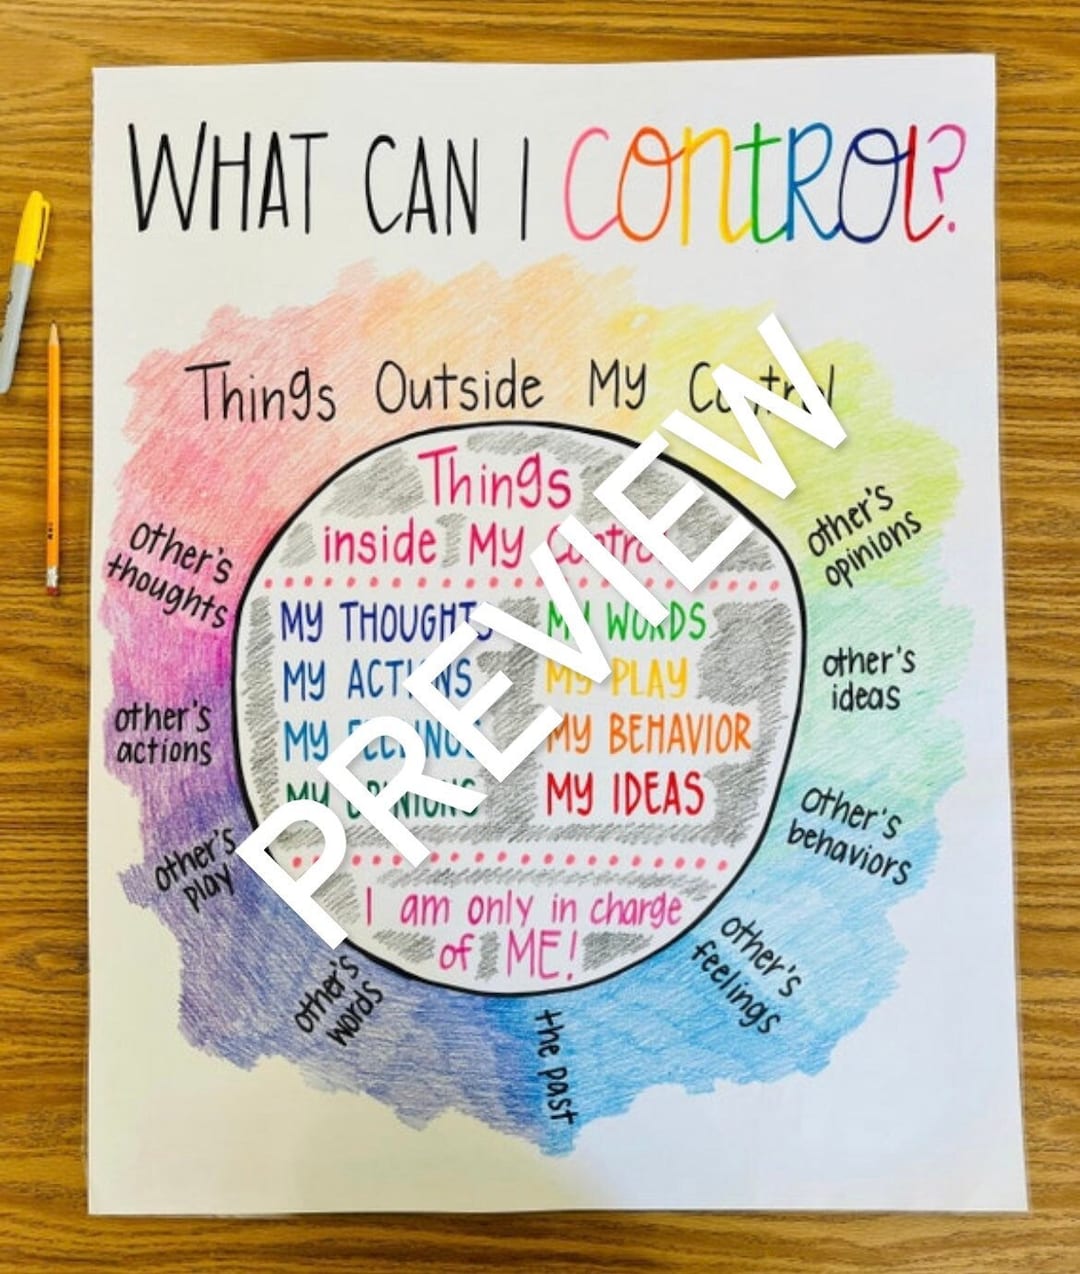 WHAT CAN I CONTROL?
Things Outside My Control
Things
inside My Control
MY THOUGHTS
MY WORDS
MY ACTIONS
MY PLAY
MY FEELINGS
MY BEHAVIOR
MY OPINIONS
MY IDEAS
I am only in charge
of ME!
other's
opinions
other's
ideas
other's
behaviors
other's
feelings
the past
other's
words
other's
play
other's
actions
other's
thoughts
PREVIEW